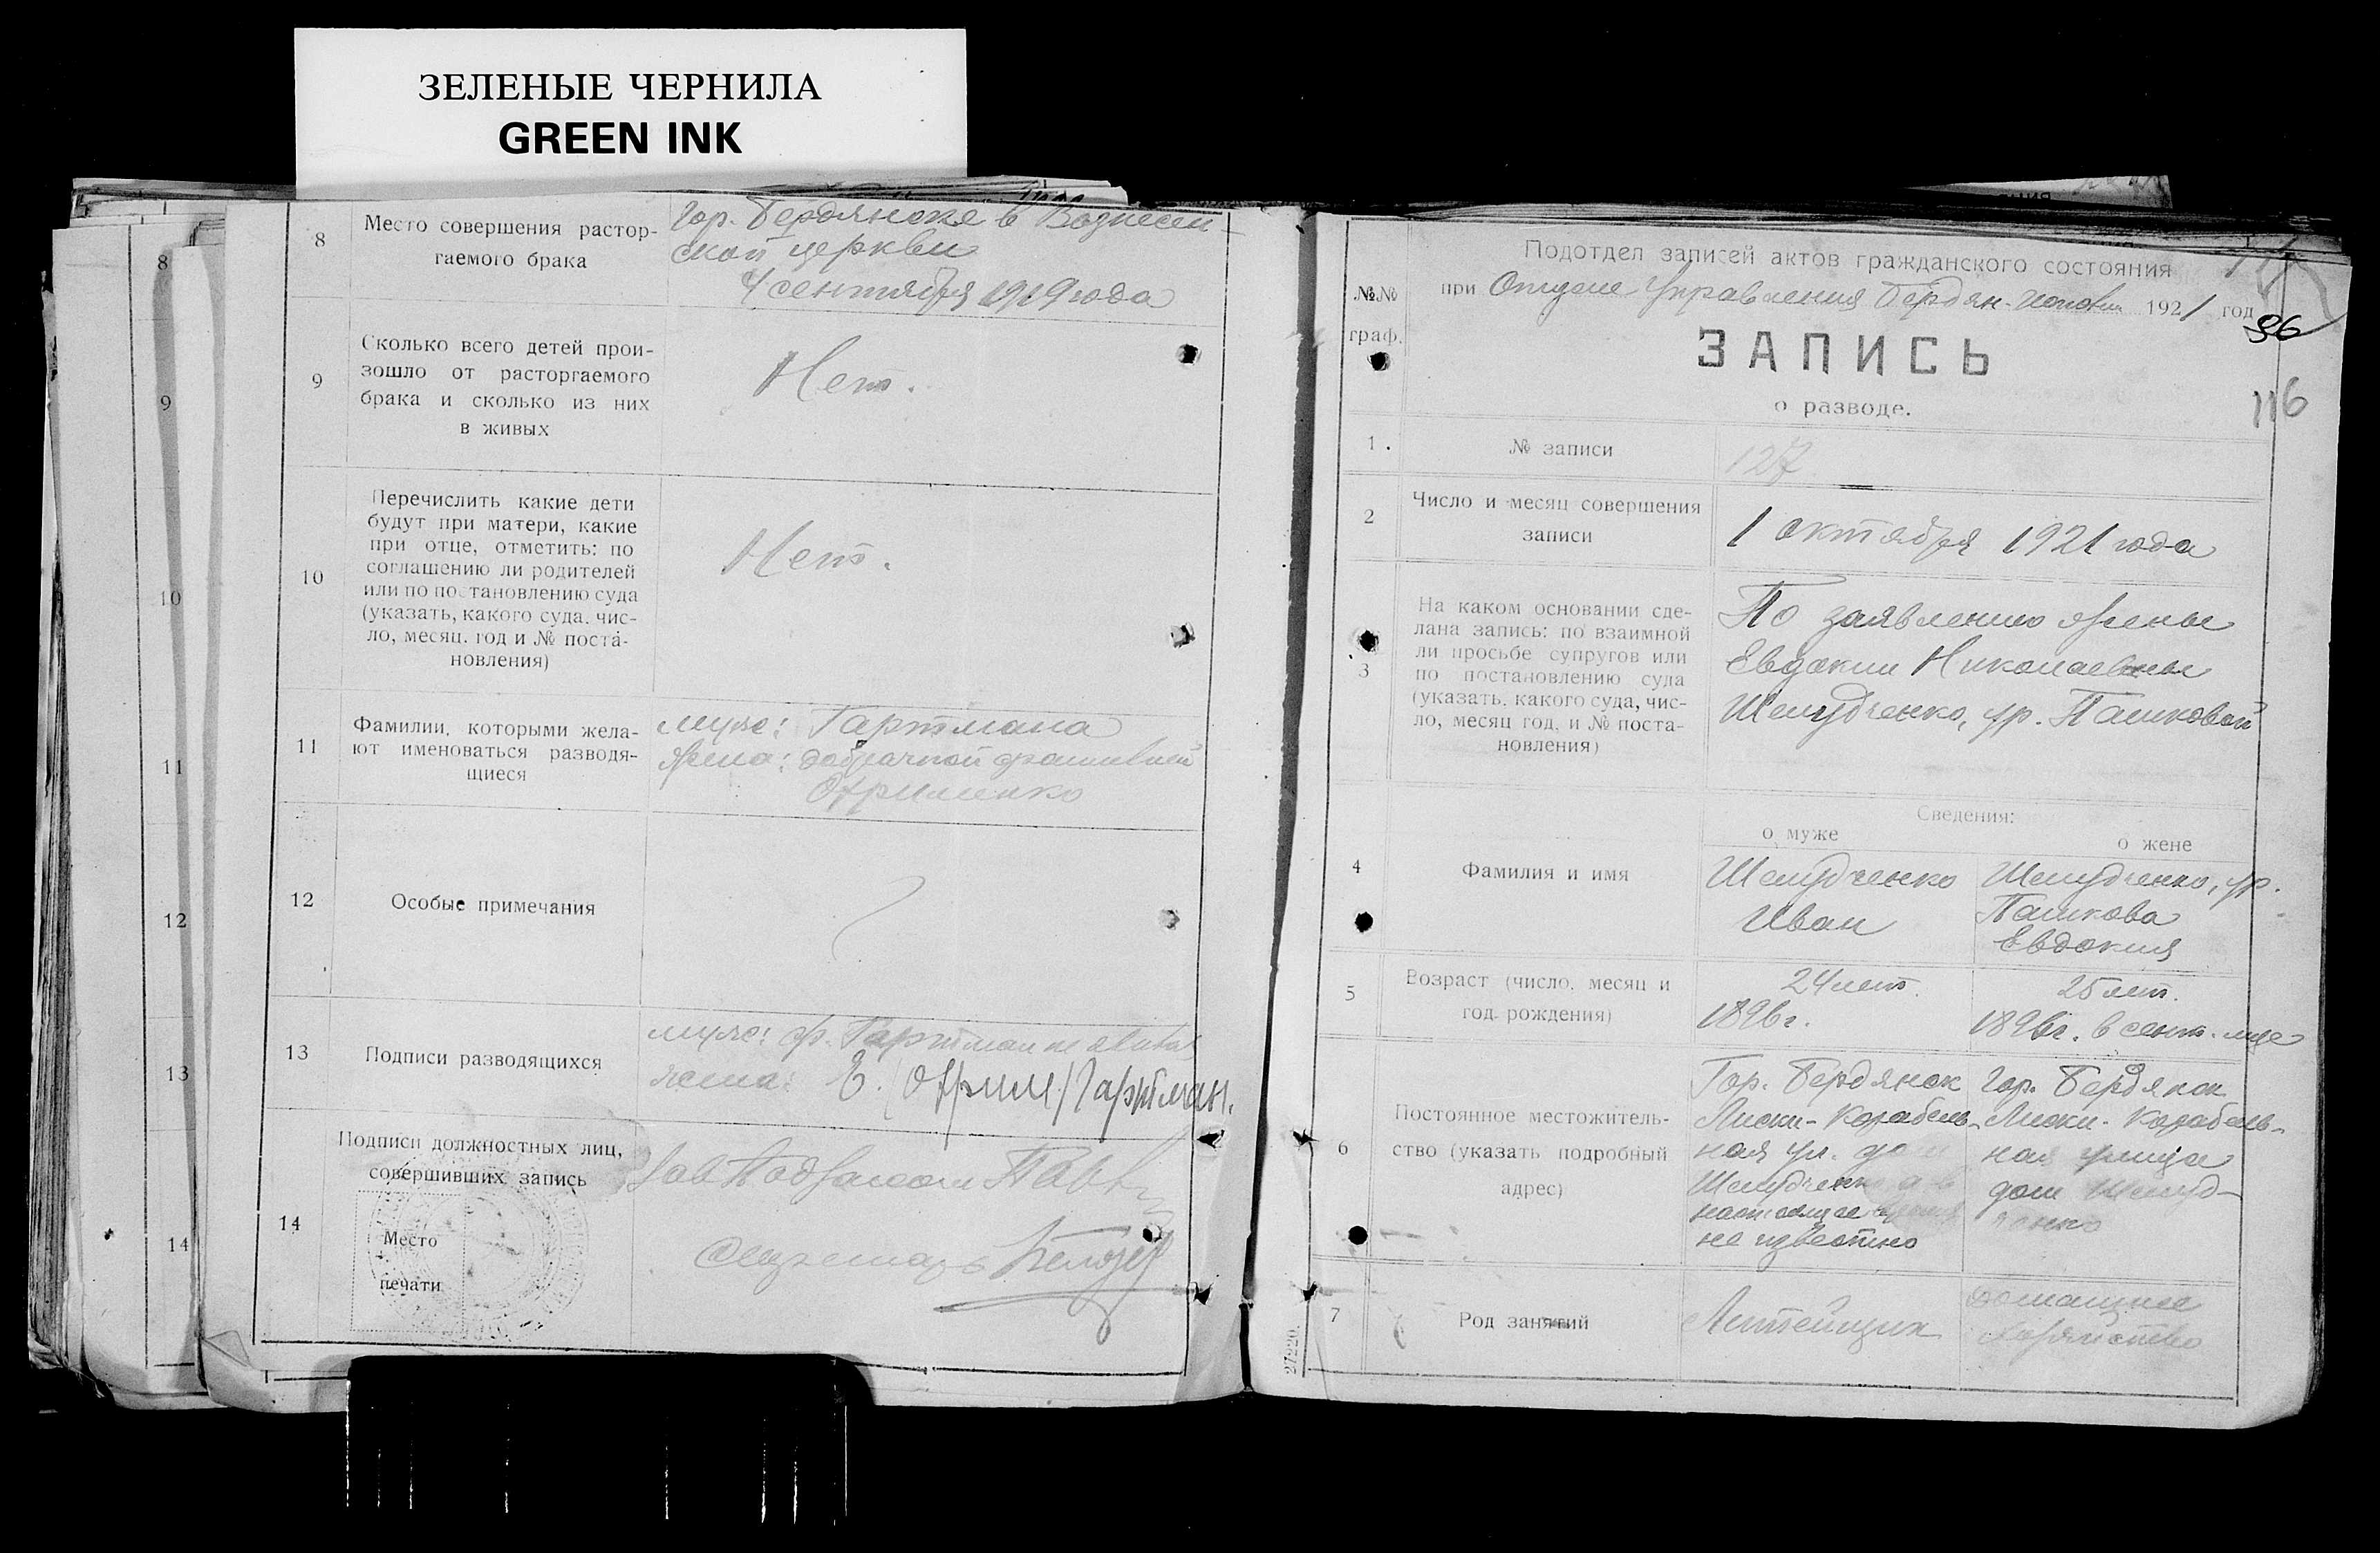 ЗЕЛЕНЫЕ ЧЕРНИЛА
GREEN INK
8
9
10
11
12
13
14
8
Место совершения растор-
гаемого брака
Гор. Бердянске в Вознесен
ской церкви
4 сентября 1919 года
9
Сколько всего детей прои-
зошло от расторгаемого
брака и сколько из них
в живых
Нет.
10
Перечислить какие дети
будут при матери, какие
при отце, отметить: по
соглашению ли родителей
или по постановлению суда
(указать, какого суда, чис-
ло, месяц, год и № поста-
новления)
Нет.
11
Фамилии, которыми жела-
ют именоваться разводя-
щиеся
муж: Гартмана
жена: добрачной фамилией
Охрименко
12
Особые примечания
13
Подписи разводящихся
муж: ф. Гартман
жена: Е. (Охрим) Гартман.
14
Подписи должностных лиц,
совершивших запись
Место
печати
Зав
Секретарь
Подотдел записей актов гражданского состояния
при Отделе Управления Бердян. 1921 год
№№
граф.
36
116
ЗАПИСЬ
о разводе.
1.
№ записи
127
2
Число и месяц совершения
записи
1 октября 1921 года
3
На каком основании сде-
лана запись: по взаимной
ли просьбе супругов или
по постановлению суда
(указать, какого суда, чис-
ло, месяц год, и № поста-
новления)
По заявлению жены
Евдокии Николаевны
Шелудченко, ур. Пашковой
Сведения:
о муже
о жене
4
Фамилия и имя
Шелудченко
Иван
Шелудченко, ур.
Пашкова
Евдокия
5
Возраст (число, месяц и
год рождения)
24 лет.
1896 г.
25 лет.
1896 г. в сент. м-це
6
Постоянное местожитель-
ство (указать подробный
адрес)
Гор. Бердянск
Лиски-Корабель-
ная ул. дом
Шелудченко а в
настоящее время
не известно
Гор. Бердянск
Лиски-Корабель-
ная улица
дом Шелуд-
ченко
7
Род занятий
Литейщик
домашнее
хозяйство
27220.